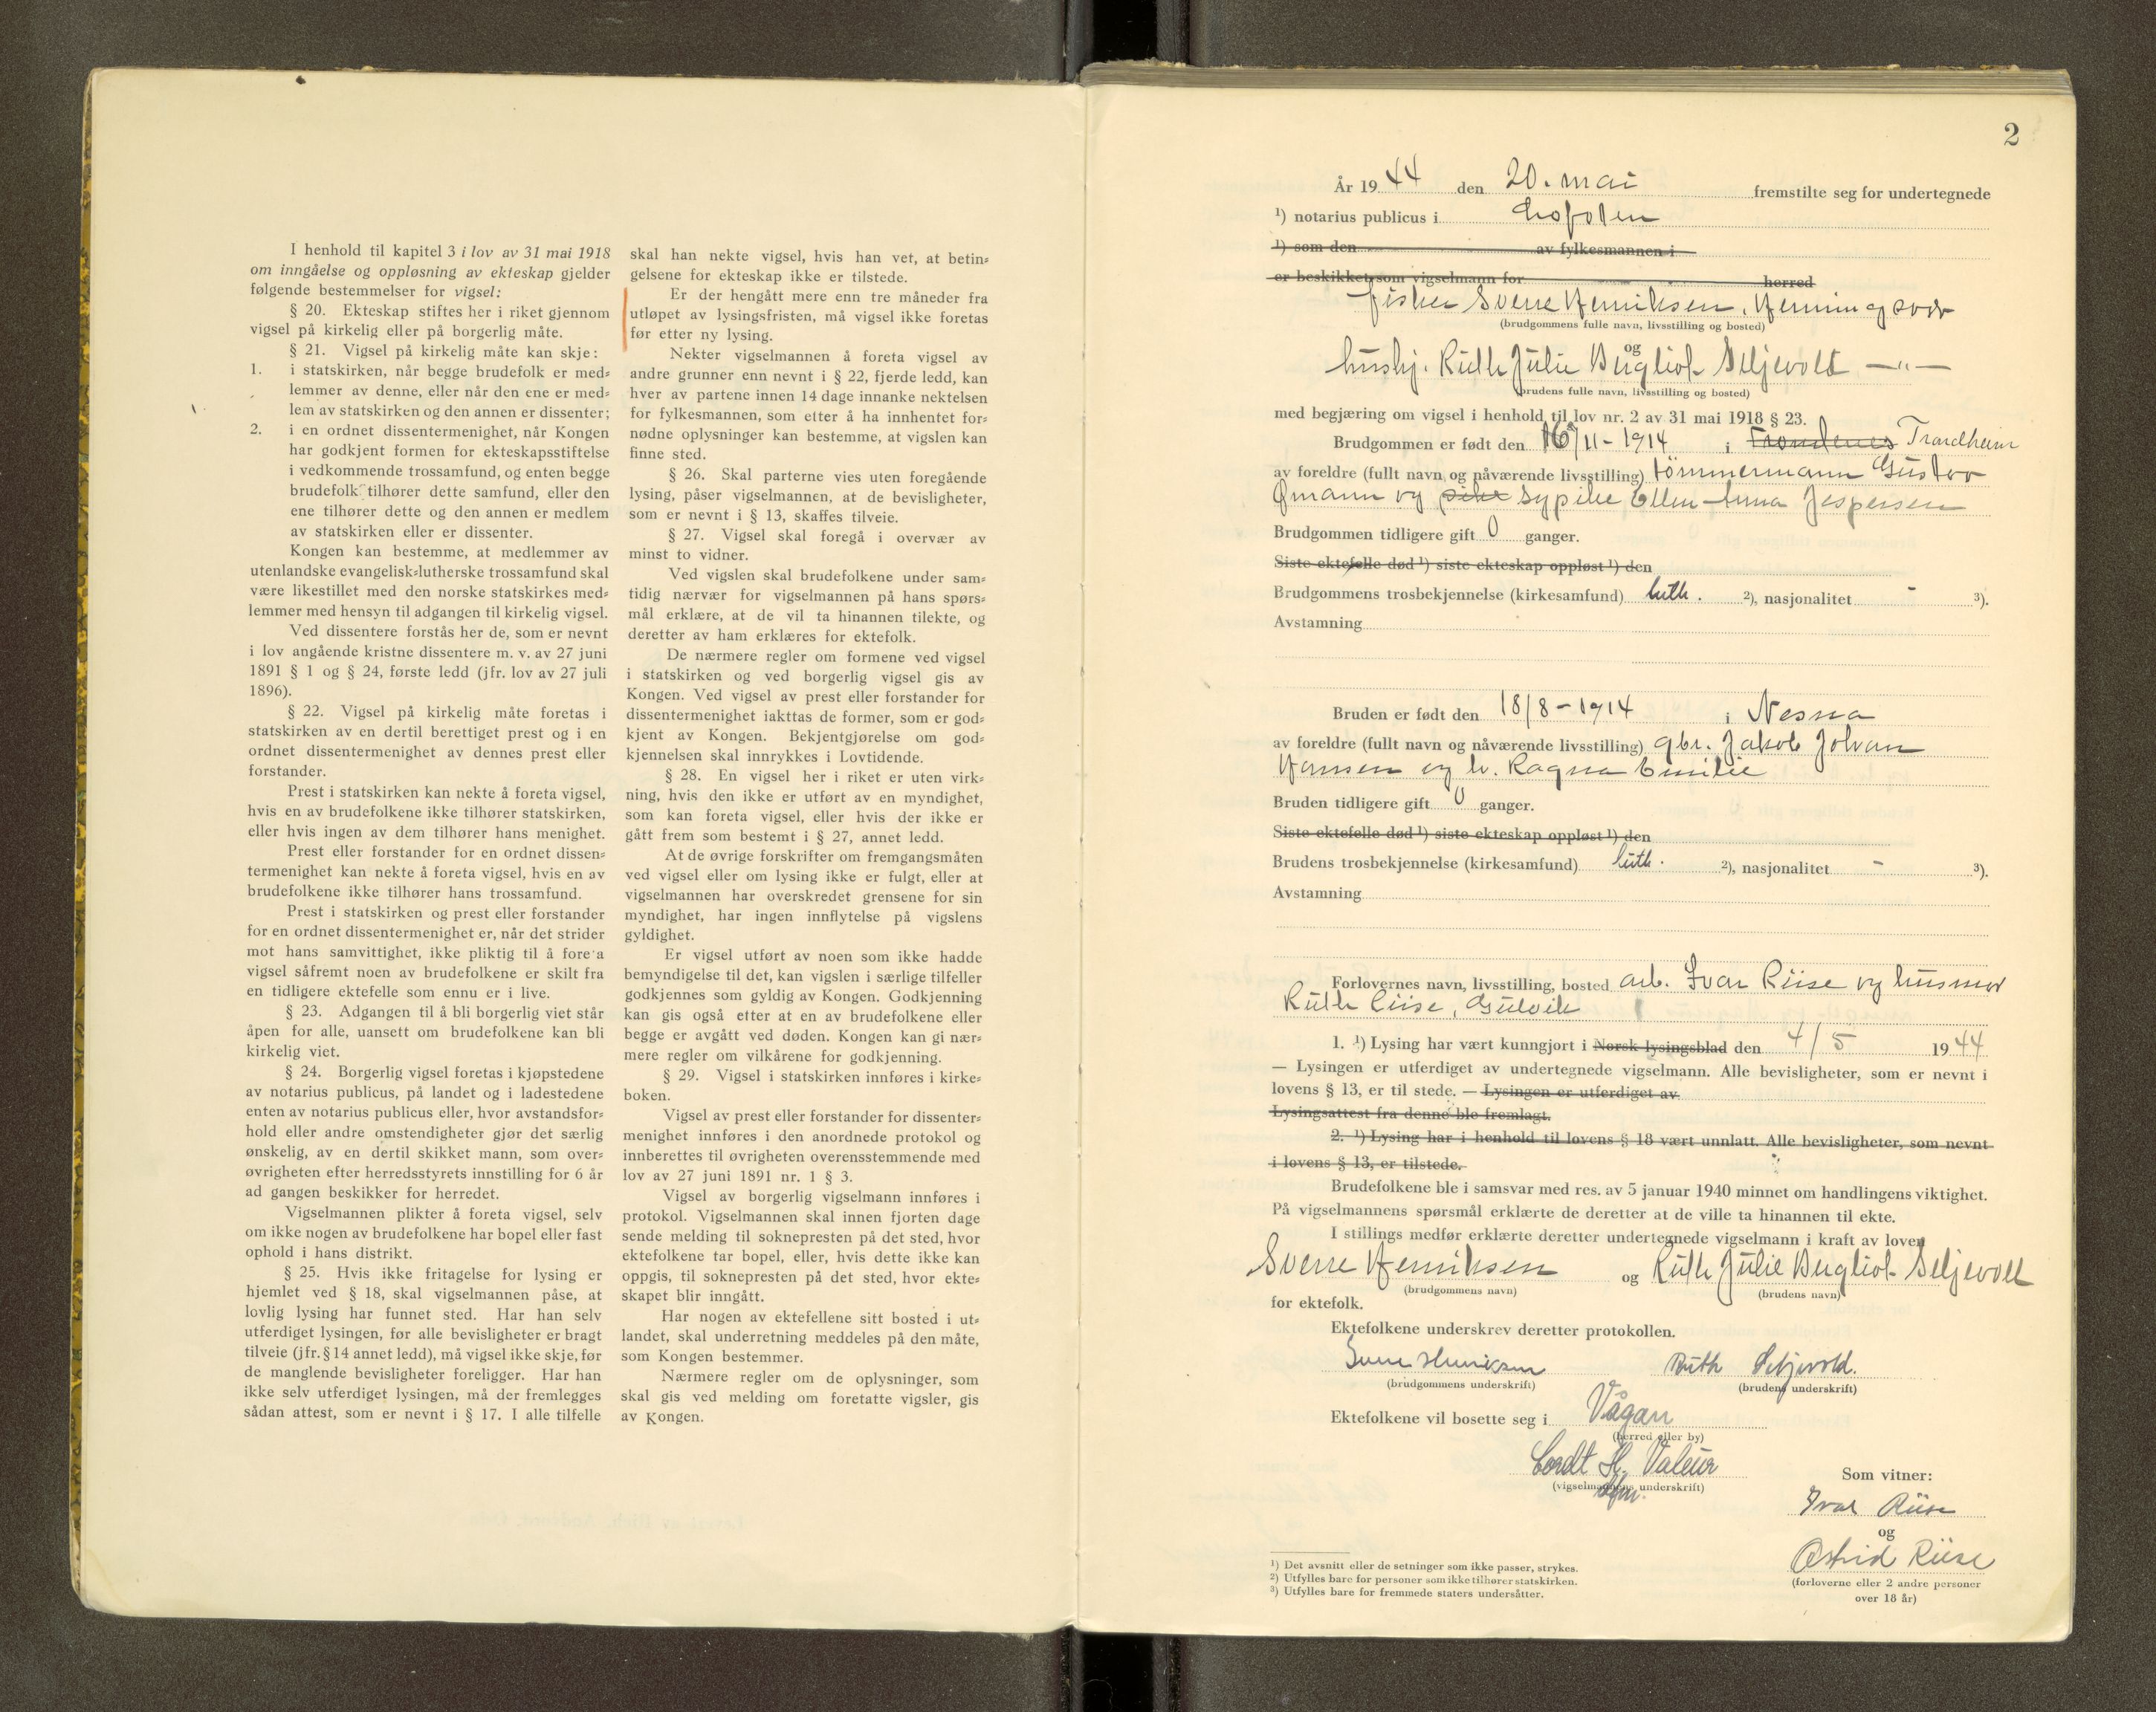 I henhold til kapitel 3 i lov av 31 mai 1918
om inngåelse og oppløsning av ekteskap gjelder
følgende bestemmelser for vigsel:
§ 20. Ekteskap stiftes her i riket gjennom
vigsel på kirkelig eller på borgerlig måte.
§ 21. Vigsel på kirkelig måte kan skje:
1. i statskirken, når begge brudefolk er med=
lemmer av denne, eller når den ene er med=
lem av statskirken og den annen er dissenter;
2. i en ordnet dissentermenighet, når Kongen
har godkjent formen for ekteskapsstiftelse
i vedkommende trossamfund, og enten begge
brudefolk tilhører dette samfund, eller den
ene tilhører dette og den annen er medlem
av statskirken eller er dissenter.
Kongen kan bestemme, at medlemmer av
utenlandske evangelisk=lutherske trossamfund skal
være likestillet med den norske statskirkes med=
lemmer med hensyn til adgangen til kirkelig vigsel.
Ved dissentere forstås her de, som er nevnt
i lov angående kristne dissentere m. v. av 27 juni
1891 § 1 og § 24, første ledd (jfr. lov av 27 juli
1896).
§ 22. Vigsel på kirkelig måte foretas i
statskirken av en dertil berettiget prest og i en
ordnet dissentermenighet av dennes prest eller
forstander.
Prest i statskirken kan nekte å foreta vigsel,
hvis en av brudefolkene ikke tilhører statskirken,
eller hvis ingen av dem tilhører hans menighet.
Prest eller forstander for en ordnet dissen=
termenighet kan nekte å foreta vigsel, hvis en av
brudefolkene ikke tilhører hans trossamfund.
Prest i statskirken og prest eller forstander
for en ordnet dissentermenighet er, når det strider
mot hans samvittighet, ikke pliktig til å fore a
vigsel såfremt noen av brudefolkene er skilt fra
en tidligere ektefelle som ennu er i live.
§ 23. Adgangen til å bli borgerlig viet står
åpen for alle, uansett om brudefolkene kan bli
kirkelig viet.
§ 24. Borgerlig vigsel foretas i kjøpstedene
av notarius publicus, på landet og i ladestedene
enten av notarius publicus eller, hvor avstandsfor=
hold eller andre omstendigheter gjør det særlig
ønskelig, av en dertil skikket mann, som over=
øvrigheten efter herredsstyrets innstilling for 6 år
ad gangen beskikker for herredet.
Vigselmannen plikter å foreta vigsel, selv
om ikke nogen av brudefolkene har bopel eller fast
ophold i hans distrikt.
§ 25. Hvis ikke fritagelse for lysing er
hjemlet ved § 18, skal vigselmannen påse, at
lovlig lysing har funnet sted. Har han selv
utferdiget lysingen, før alle bevisligheter er bragt
tilveie (jfr. § 14 annet ledd), må vigsel ikke skje, før
de manglende bevisligheter foreligger. Har han
ikke selv utferdiget lysingen, må der fremlegges
sådan attest, som er nevnt i § 17. I alle tilfelle
skal han nekte vigsel, hvis han vet, at betin=
gelsene for ekteskap ikke er tilstede.
Er der hengått mere enn tre måneder fra
utløpet av lysingsfristen, må vigsel ikke foretas
før etter ny lysing.
Nekter vigselmannen å foreta vigsel av
andre grunner enn nevnt i § 22, fjerde ledd, kan
hver av partene innen 14 dage innanke nektelsen
for fylkesmannen, som etter å ha innhentet for=
nødne oplysninger kan bestemme, at vigslen kan
finne sted.
§ 26. Skal parterne vies uten foregående
lysing, påser vigselmannen, at de bevisligheter,
som er nevnt i § 13, skaffes tilveie.
§ 27. Vigsel skal foregå i overvær av
minst to vidner.
Ved vigslen skal brudefolkene under sam=
tidig nærvær for vigselmannen på hans spørs=
mål erklære, at de vil ta hinannen tilekte, og
deretter av ham erklæres for ektefolk.
De nærmere regler om formene ved vigsel
i statskirken og ved borgerlig vigsel gis av
Kongen. Ved vigsel av prest eller forstander for
dissentermenighet iakttas de former, som er god=
kjent av Kongen. Bekjentgjørelse om god=
kjennelsen skal innrykkes i Lovtidende.
§ 28. En vigsel her i riket er uten virk=
ning, hvis den ikke er utført av en myndighet,
som kan foreta vigsel, eller hvis der ikke er
gått frem som bestemt i § 27, annet ledd.
At de øvrige forskrifter om fremgangsmåten
ved vigsel eller om lysing ikke er fulgt, eller at
vigselmannen har overskredet grensene for sin
myndighet, har ingen innflytelse på vigslens
gyldighet.
Er vigsel utført av noen som ikke hadde
bemyndigelse til det, kan vigslen i særlige tilfeller
godkjennes som gyldig av Kongen. Godkjenning
kan gis også etter at en av brudefolkene eller
begge er avgått ved døden. Kongen kan gi nær=
mere regler om vilkårene for godkjenning.
§ 29. Vigsel i statskirken innføres i kirke=
boken.
Vigsel av prest eller forstander for dissenter=
menighet innføres i den anordnede protokol og
innberettes til øvrigheten overensstemmende med
lov av 27 juni 1891 nr. 1 § 3.
Vigsel av borgerlig vigselmann innføres i
protokol. Vigselmannen skal innen fjorten dage
sende melding til soknepresten på det sted, hvor
ektefolkene tar bopel, eller, hvis dette ikke kan
oppgis, til soknepresten på det sted, hvor ekte=
skapet blir inngått.
Har nogen av ektefellene sitt bosted i ut=
landet, skal underretning meddeles på den måte,
som Kongen bestemmer.
Nærmere regler om de oplysninger, som
skal gis ved melding om foretatte vigsler, gis
av Kongen.
2
År 1944 den 20. mai fremstilte seg for undertegnede
1) notarius publicus i Lofoten
1) som den av fylkesmannen i
er beskikket som vigselmann for herred
fisker Sverre Henriksen, Henningsvær
(brudgommens fulle navn, livsstilling og bosted)
og
hushj. Ruth Julie Bugliot Seljevold —"—
(brudens fulle navn, livsstilling og bosted)
med begjæring om vigsel i henhold til lov nr. 2 av 31 mai 1918 § 23.
Brudgommen er født den 16/11-1914 i Trondenes Trondheim
av foreldre (fullt navn og nåværende livsstilling) tømmermann Gustav
Ømann og pike sypike Ellen Anna Jespersen
Brudgommen tidligere gift 0 ganger.
Siste ektefelle død 1) siste ekteskap oppløst 1) den
Brudgommens trosbekjennelse (kirkesamfund) luth. 2), nasjonalitet - 3).
Avstamning
Bruden er født den 18/8-1914 i Nesna
av foreldre (fullt navn og nåværende livsstilling) gbr. Jakob Johan
Hansen og h. Ragna Emilie
Bruden tidligere gift 0 ganger.
Siste ektefelle død 1) siste ekteskap oppløst 1) den
Brudens trosbekjennelse (kirkesamfund) luth. 2), nasjonalitet - 3).
Avstamning
Forlovernes navn, livsstilling, bosted arb. Ivar Riise og husmor
Ruth Riise, Gulvik
1. 1) Lysing har vært kunngjort i Norsk lysingsblad den 4/5 1944
— Lysingen er utferdiget av undertegnede vigselmann. Alle bevisligheter, som er nevnt i
lovens § 13, er til stede. — Lysingen er utferdiget av
Lysingsattest fra denne ble fremlagt.
2. 1) Lysing har i henhold til lovens § 18 vært unnlatt. Alle bevisligheter, som nevnt
i lovens § 13, er tilstede.
Brudefolkene ble i samsvar med res. av 5 januar 1940 minnet om handlingens viktighet.
På vigselmannens spørsmål erklærte de deretter at de ville ta hinannen til ekte.
I stillings medfør erklærte deretter undertegnede vigselmann i kraft av loven
Sverre Henriksen og Ruth Julie Bugliot Seljevold
(brudgommens navn) (brudens navn)
for ektefolk.
Ektefolkene underskrev deretter protokollen.
Sverre Henriksen Ruth Seljevold.
(brudgommens underskrift) (brudens underskrift)
Ektefolkene vil bosette seg i Vågan
(herred eller by)
Cordt H. Valeur
(vigselmannens underskrift)
Som vitner:
Ivar Riise
og
Astrid Riise
(forloverne eller 2 andre personer
over 18 år)
1) Det avsnitt eller de setninger som ikke passer, strykes.
2) Utfylles bare for personer som ikke tilhører statskirken.
3) Utfylles bare for fremmede staters undersåtter.